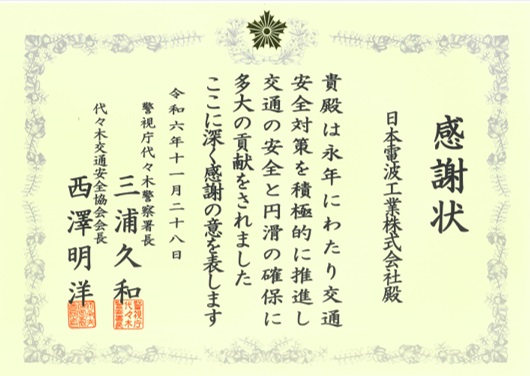 感謝状
日本電波工業株式会社殿
貴殿は永年にわたり交通
安全対策を積極的に推進し
交通の安全と円滑の確保に
多大の貢献をされました
ここに深く感謝の意を表します
令和六年十一月二十八日
警視庁代々木警察署長
三浦久和
代々木交通安全協会会長
西澤明洋